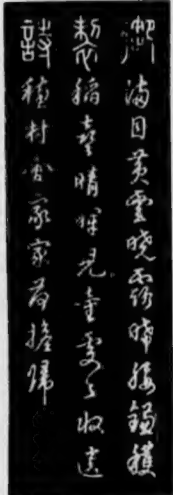 御滿目黃雲曉露晞腰鎌穫
製稻喜晴暉兒童處々收遺
詩穗村舍家家荷擔歸